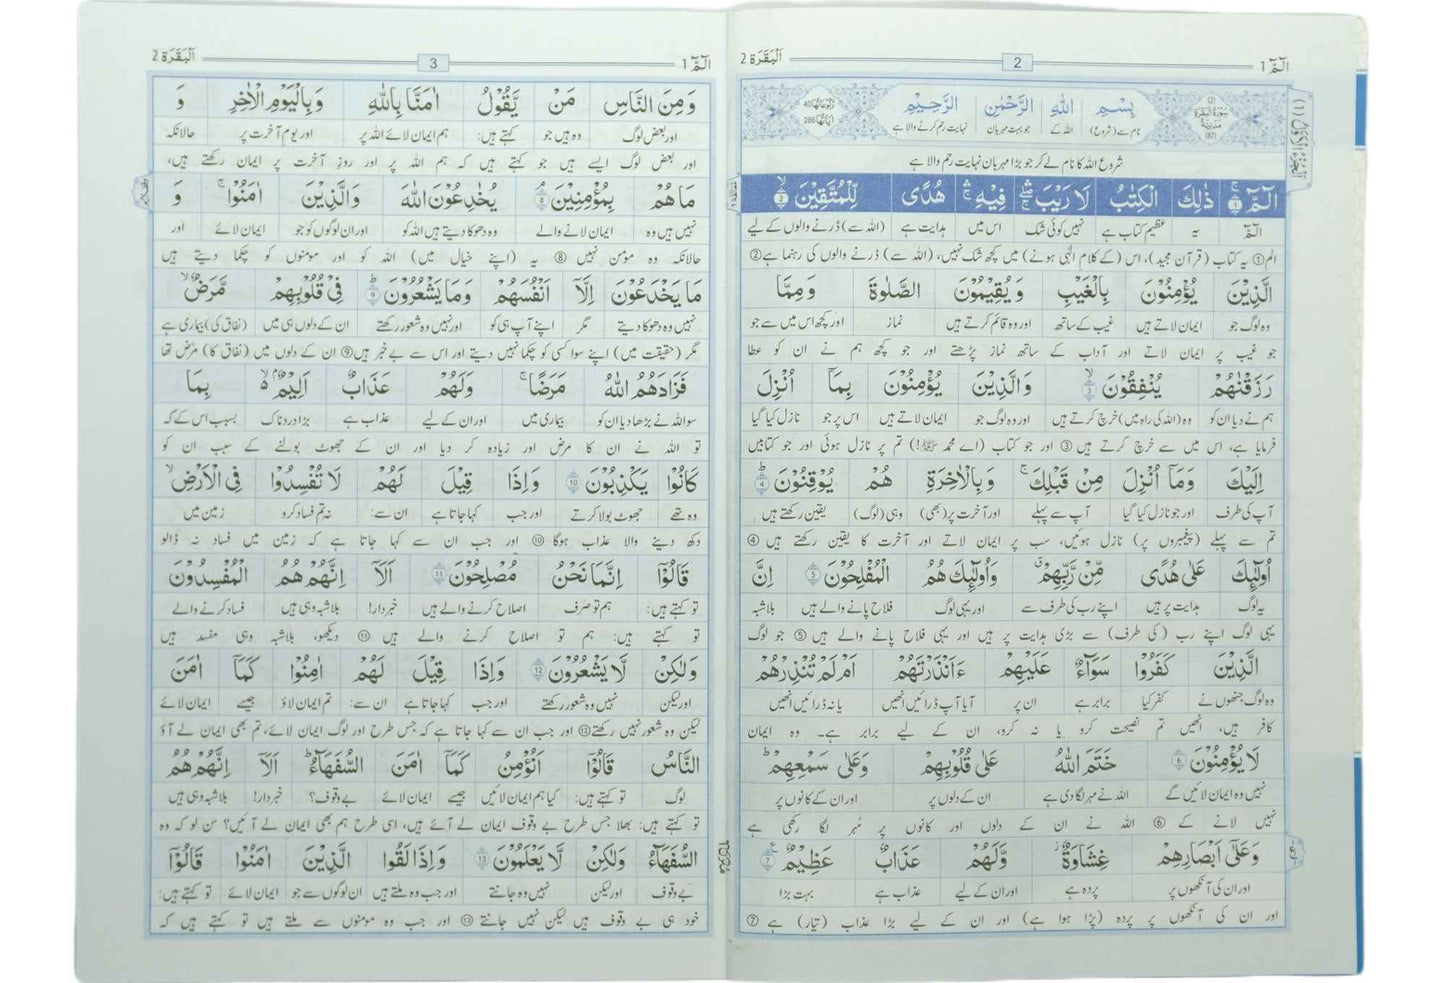 الٓمّٓ 1
2
اَلْبَقَرَة 2
بِسْمِ اللّٰهِ الرَّحْمٰنِ الرَّحِيْمِ
نام سے (شروع) اللہ کے جو بہت مہربان نہایت رحم کرنے والا ہے
شروع اللہ کا نام لے کر جو بڑا مہربان نہایت رحم والا ہے
الٓمّٓ 1 ذٰلِكَ الْكِتٰبُ لَا رَيْبَ فِيْهِ هُدًى لِّلْمُتَّقِيْنَ 2
الٓمّٓ یہ عظیم کتاب ہے نہیں کوئی شک اس میں ہدایت ہے (اللہ سے) ڈرنے والوں کے لیے
الم ① یہ کتاب (قرآن مجید)، اس (کے کلام الٰہی ہونے) میں کچھ شک نہیں، (اللہ سے) ڈرنے والوں کی رہنما ہے ②
الَّذِيْنَ يُؤْمِنُوْنَ بِالْغَيْبِ وَيُقِيْمُوْنَ الصَّلٰوةَ وَمِمَّا
وہ لوگ جو ایمان لاتے ہیں غیب کے ساتھ اور وہ قائم کرتے ہیں نماز اور کچھ اس میں سے جو
جو غیب پر ایمان لاتے اور آداب کے ساتھ نماز پڑھتے اور جو کچھ ہم نے ان کو عطا
رَزَقْنٰهُمْ يُنْفِقُوْنَ 3 وَالَّذِيْنَ يُؤْمِنُوْنَ بِمَاۤ اُنْزِلَ
ہم نے دیا ان کو وہ (اللہ کی راہ میں) خرچ کرتے ہیں اور وہ لوگ جو ایمان لاتے ہیں اس پر جو نازل کیا گیا
فرمایا ہے، اس میں سے خرچ کرتے ہیں ③ اور جو کتاب (اے محمد ﷺ!) تم پر نازل ہوئی اور جو کتابیں
اِلَيْكَ وَمَاۤ اُنْزِلَ مِنْ قَبْلِكَ وَبِالْاٰخِرَةِ هُمْ يُوْقِنُوْنَ 4
آپ کی طرف اور جو نازل کیا گیا آپ سے پہلے اور آخرت پر (بھی) وہی (لوگ) یقین رکھتے ہیں
تم سے پہلے (پیغمبروں پر) نازل ہوئیں، سب پر ایمان لاتے اور آخرت کا یقین رکھتے ہیں ④
اُولٰٓئِكَ عَلٰى هُدًى مِّنْ رَّبِّهِمْ وَاُولٰٓئِكَ هُمُ الْمُفْلِحُوْنَ 5 اِنَّ
یہ لوگ ہدایت پر ہیں اپنے رب کی طرف سے اور یہی لوگ فلاح پانے والے ہیں بلاشبہ
یہی لوگ اپنے رب (کی طرف) سے بڑی ہدایت پر ہیں اور یہی فلاح پانے والے ہیں ⑤ جو لوگ
الَّذِيْنَ كَفَرُوْا سَوَآءٌ عَلَيْهِمْ ءَاَنْذَرْتَهُمْ اَمْ لَمْ تُنْذِرْهُمْ
وہ لوگ جنھوں نے کفر کیا برابر ہے ان پر آیا آپ ڈرائیں انھیں یا نہ ڈرائیں انھیں
کافر ہیں، انھیں تم نصیحت کرو یا نہ کرو، ان کے لیے برابر ہے۔ وہ ایمان
لَا يُؤْمِنُوْنَ 6 خَتَمَ اللّٰهُ عَلٰى قُلُوْبِهِمْ وَعَلٰى سَمْعِهِمْ
نہیں وہ ایمان لائیں گے اللہ نے مہر لگا دی ہے ان کے دلوں پر اور ان کے کانوں پر
نہیں لانے کے ⑥ اللہ نے ان کے دلوں اور کانوں پر مُہر لگا رکھی ہے
وَعَلٰۤى اَبْصَارِهِمْ غِشَاوَةٌ وَّلَهُمْ عَذَابٌ عَظِيْمٌ 7
اور ان کی آنکھوں پر پردہ ہے اور ان کے لیے عذاب ہے بہت بڑا
اور ان کی آنکھوں پر پردہ (پڑا ہوا ہے) اور ان کے لیے بڑا عذاب (تیار) ہے ⑦
الٓمّٓ 1
3
اَلْبَقَرَة 2
وَمِنَ النَّاسِ مَنْ يَّقُوْلُ اٰمَنَّا بِاللّٰهِ وَبِالْيَوْمِ الْاٰخِرِ وَ
اور بعض لوگ وہ ہیں جو کہتے ہیں: ہم ایمان لائے اللہ پر اور یوم آخرت پر حالانکہ
اور بعض لوگ ایسے ہیں جو کہتے ہیں کہ ہم اللہ پر اور روزِ آخرت پر ایمان رکھتے ہیں،
مَا هُمْ بِمُؤْمِنِيْنَ 8 يُخٰدِعُوْنَ اللّٰهَ وَالَّذِيْنَ اٰمَنُوْا وَ
نہیں ہیں وہ ایمان لانے والے وہ دھوکا دیتے ہیں اللہ کو اور ان لوگوں کو جو ایمان لائے اور
حالانکہ وہ مؤمن نہیں ⑧ یہ (اپنے خیال میں) اللہ کو اور مومنوں کو چکما دیتے ہیں
مَا يَخْدَعُوْنَ اِلَّاۤ اَنْفُسَهُمْ وَمَا يَشْعُرُوْنَ 9 فِيْ قُلُوْبِهِمْ مَّرَضٌ
نہیں وہ دھوکا دیتے مگر اپنے آپ ہی کو اور نہیں وہ شعور رکھتے ان کے دلوں ہی میں (نفاق کی) بیماری ہے
مگر (حقیقت میں) اپنے سوا کسی کو چکما نہیں دیتے اور اس سے بے خبر ہیں ⑨ ان کے دلوں میں (نفاق کا) مرض تھا
فَزَادَهُمُ اللّٰهُ مَرَضًا وَلَهُمْ عَذَابٌ اَلِيْمٌ بِمَا
سو اللہ نے بڑھا دیا ان کو بیماری میں اور ان کے لیے عذاب ہے بڑا دردناک بسبب اس کے کہ
تو اللہ نے ان کا مرض اور زیادہ کر دیا اور ان کے جھوٹ بولنے کے سبب ان کو
كَانُوْا يَكْذِبُوْنَ 10 وَاِذَا قِيْلَ لَهُمْ لَا تُفْسِدُوْا فِي الْاَرْضِ
وہ تھے جھوٹ بولا کرتے اور جب کہا جاتا ہے ان سے: نہ تم فساد کرو زمین میں
دکھ دینے والا عذاب ہوگا ⑩ اور جب ان سے کہا جاتا ہے کہ زمین میں فساد نہ ڈالو
قَالُوْۤا اِنَّمَا نَحْنُ مُصْلِحُوْنَ 11 اَلَاۤ اِنَّهُمْ هُمُ الْمُفْسِدُوْنَ
تو کہتے ہیں: ہم تو صرف اصلاح کرنے والے ہیں خبردار! بلاشبہ وہی ہیں فساد کرنے والے
تو کہتے ہیں: ہم تو اصلاح کرنے والے ہیں ⑪ دیکھو، بلاشبہ وہی مفسد ہیں
وَلٰكِنْ لَّا يَشْعُرُوْنَ 12 وَاِذَا قِيْلَ لَهُمْ اٰمِنُوْا كَمَاۤ اٰمَنَ
اور لیکن نہیں وہ شعور رکھتے اور جب کہا جاتا ہے ان سے: تم ایمان لاؤ جیسے ایمان لائے
لیکن وہ شعور نہیں رکھتے ⑫ اور جب ان سے کہا جاتا ہے کہ جس طرح اور لوگ ایمان لائے، تم بھی ایمان لے آؤ
النَّاسُ قَالُوْۤا اَنُؤْمِنُ كَمَاۤ اٰمَنَ السُّفَهَآءُ اَلَاۤ اِنَّهُمْ هُمُ
لوگ تو کہتے ہیں: کیا ہم ایمان لائیں جیسے ایمان لائے بے وقوف؟ خبردار! بلاشبہ وہی ہیں
تو کہتے ہیں: بھلا جس طرح بے وقوف ایمان لے آئے ہیں، اسی طرح ہم بھی ایمان لے آئیں؟ سن لو کہ وہ
السُّفَهَآءُ وَلٰكِنْ لَّا يَعْلَمُوْنَ 13 وَاِذَا لَقُوا الَّذِيْنَ اٰمَنُوْا قَالُوْۤا
بے وقوف اور لیکن نہیں وہ جانتے اور جب وہ ملتے ہیں ان لوگوں سے جو ایمان لائے تو کہتے ہیں:
خود ہی بے وقوف ہیں لیکن نہیں جانتے ⑬ اور جب وہ مومنوں سے ملتے ہیں تو کہتے ہیں کہ